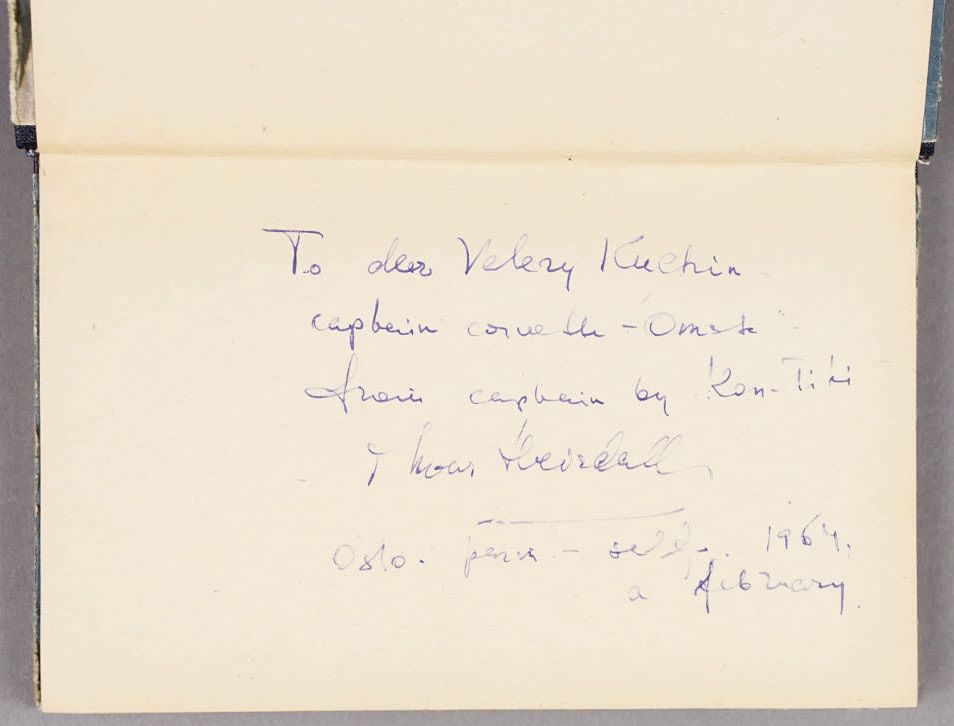 To deer Velery Kuchin
captain corvette - "Omsk"
from captain by "Kon-Tiki
Thour Heirdall
Oslo. 1964.
a february.